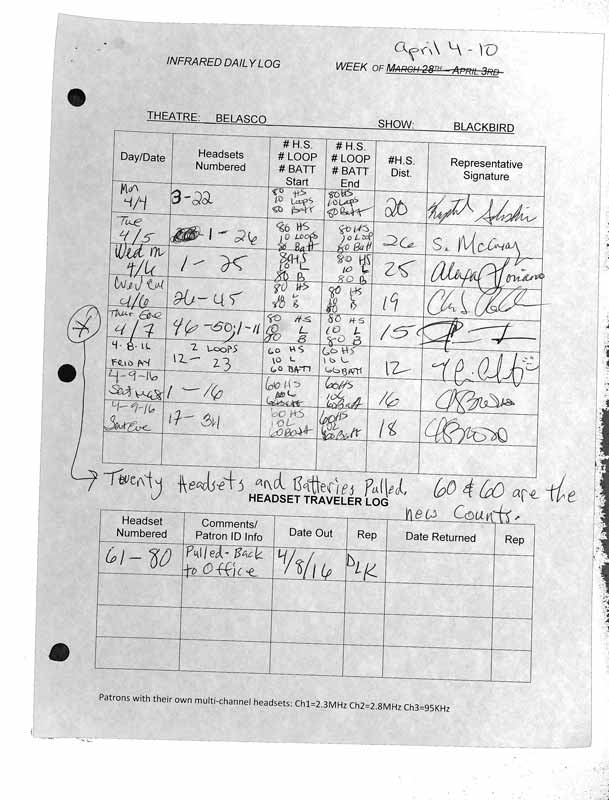 April 4-10
INFRARED DAILY LOG WEEK OF MARCH 28TH - APRIL 3RD
THEATRE: BELASCO
SHOW: BLACKBIRD
Day/Date
Headsets Numbered
# H.S. # LOOP # BATT Start
# H.S. # LOOP # BATT End
#H.S. Dist.
Representative Signature
Mon 4/4 3-22 80 HS 10 Loops 80 Batt 80 HS 10 Loops 80 Batt 20
Tue 4/5 1-26 80 HS 10 Loops 80 Batt 80 HS 10 Loop 80 Batt 26 S. McCray
Wed M 4/6 1-25 80 HS 10 L 80 B 80 HS 10 L 80 B 25
Wed Eve 4/6 26-45 80 HS 10 L 80 B 80 HS 10 L 80 B 19
Thur Eve 4/7 46-50; 1-11 80 HS 10 L 80 B 80 HS 10 L 80 B 15
4.8.16 FRIDAY 2 LOOPS 12-23 60 HS 10 L 60 BATT 60 HS 10 L 60 BATT 12
4-9-16 Sat Mat 1-16 60 HS 10 L 60 Batt 60 HS 10 L 60 Batt 16
4-9-16 Sat Eve 17-34 60 HS 10 L 60 Batt 60 HS 10 L 60 Batt 18
Twenty Headsets and Batteries Pulled. 60 & 60 are the
new Counts.
HEADSET TRAVELER LOG
Headset Numbered
Comments/ Patron ID Info
Date Out
Rep
Date Returned
Rep
61-80 Pulled-Back to Office 4/8/16 DLK
Patrons with their own multi-channel headsets: Ch1=2.3MHz Ch2=2.8MHz Ch3=95KHz